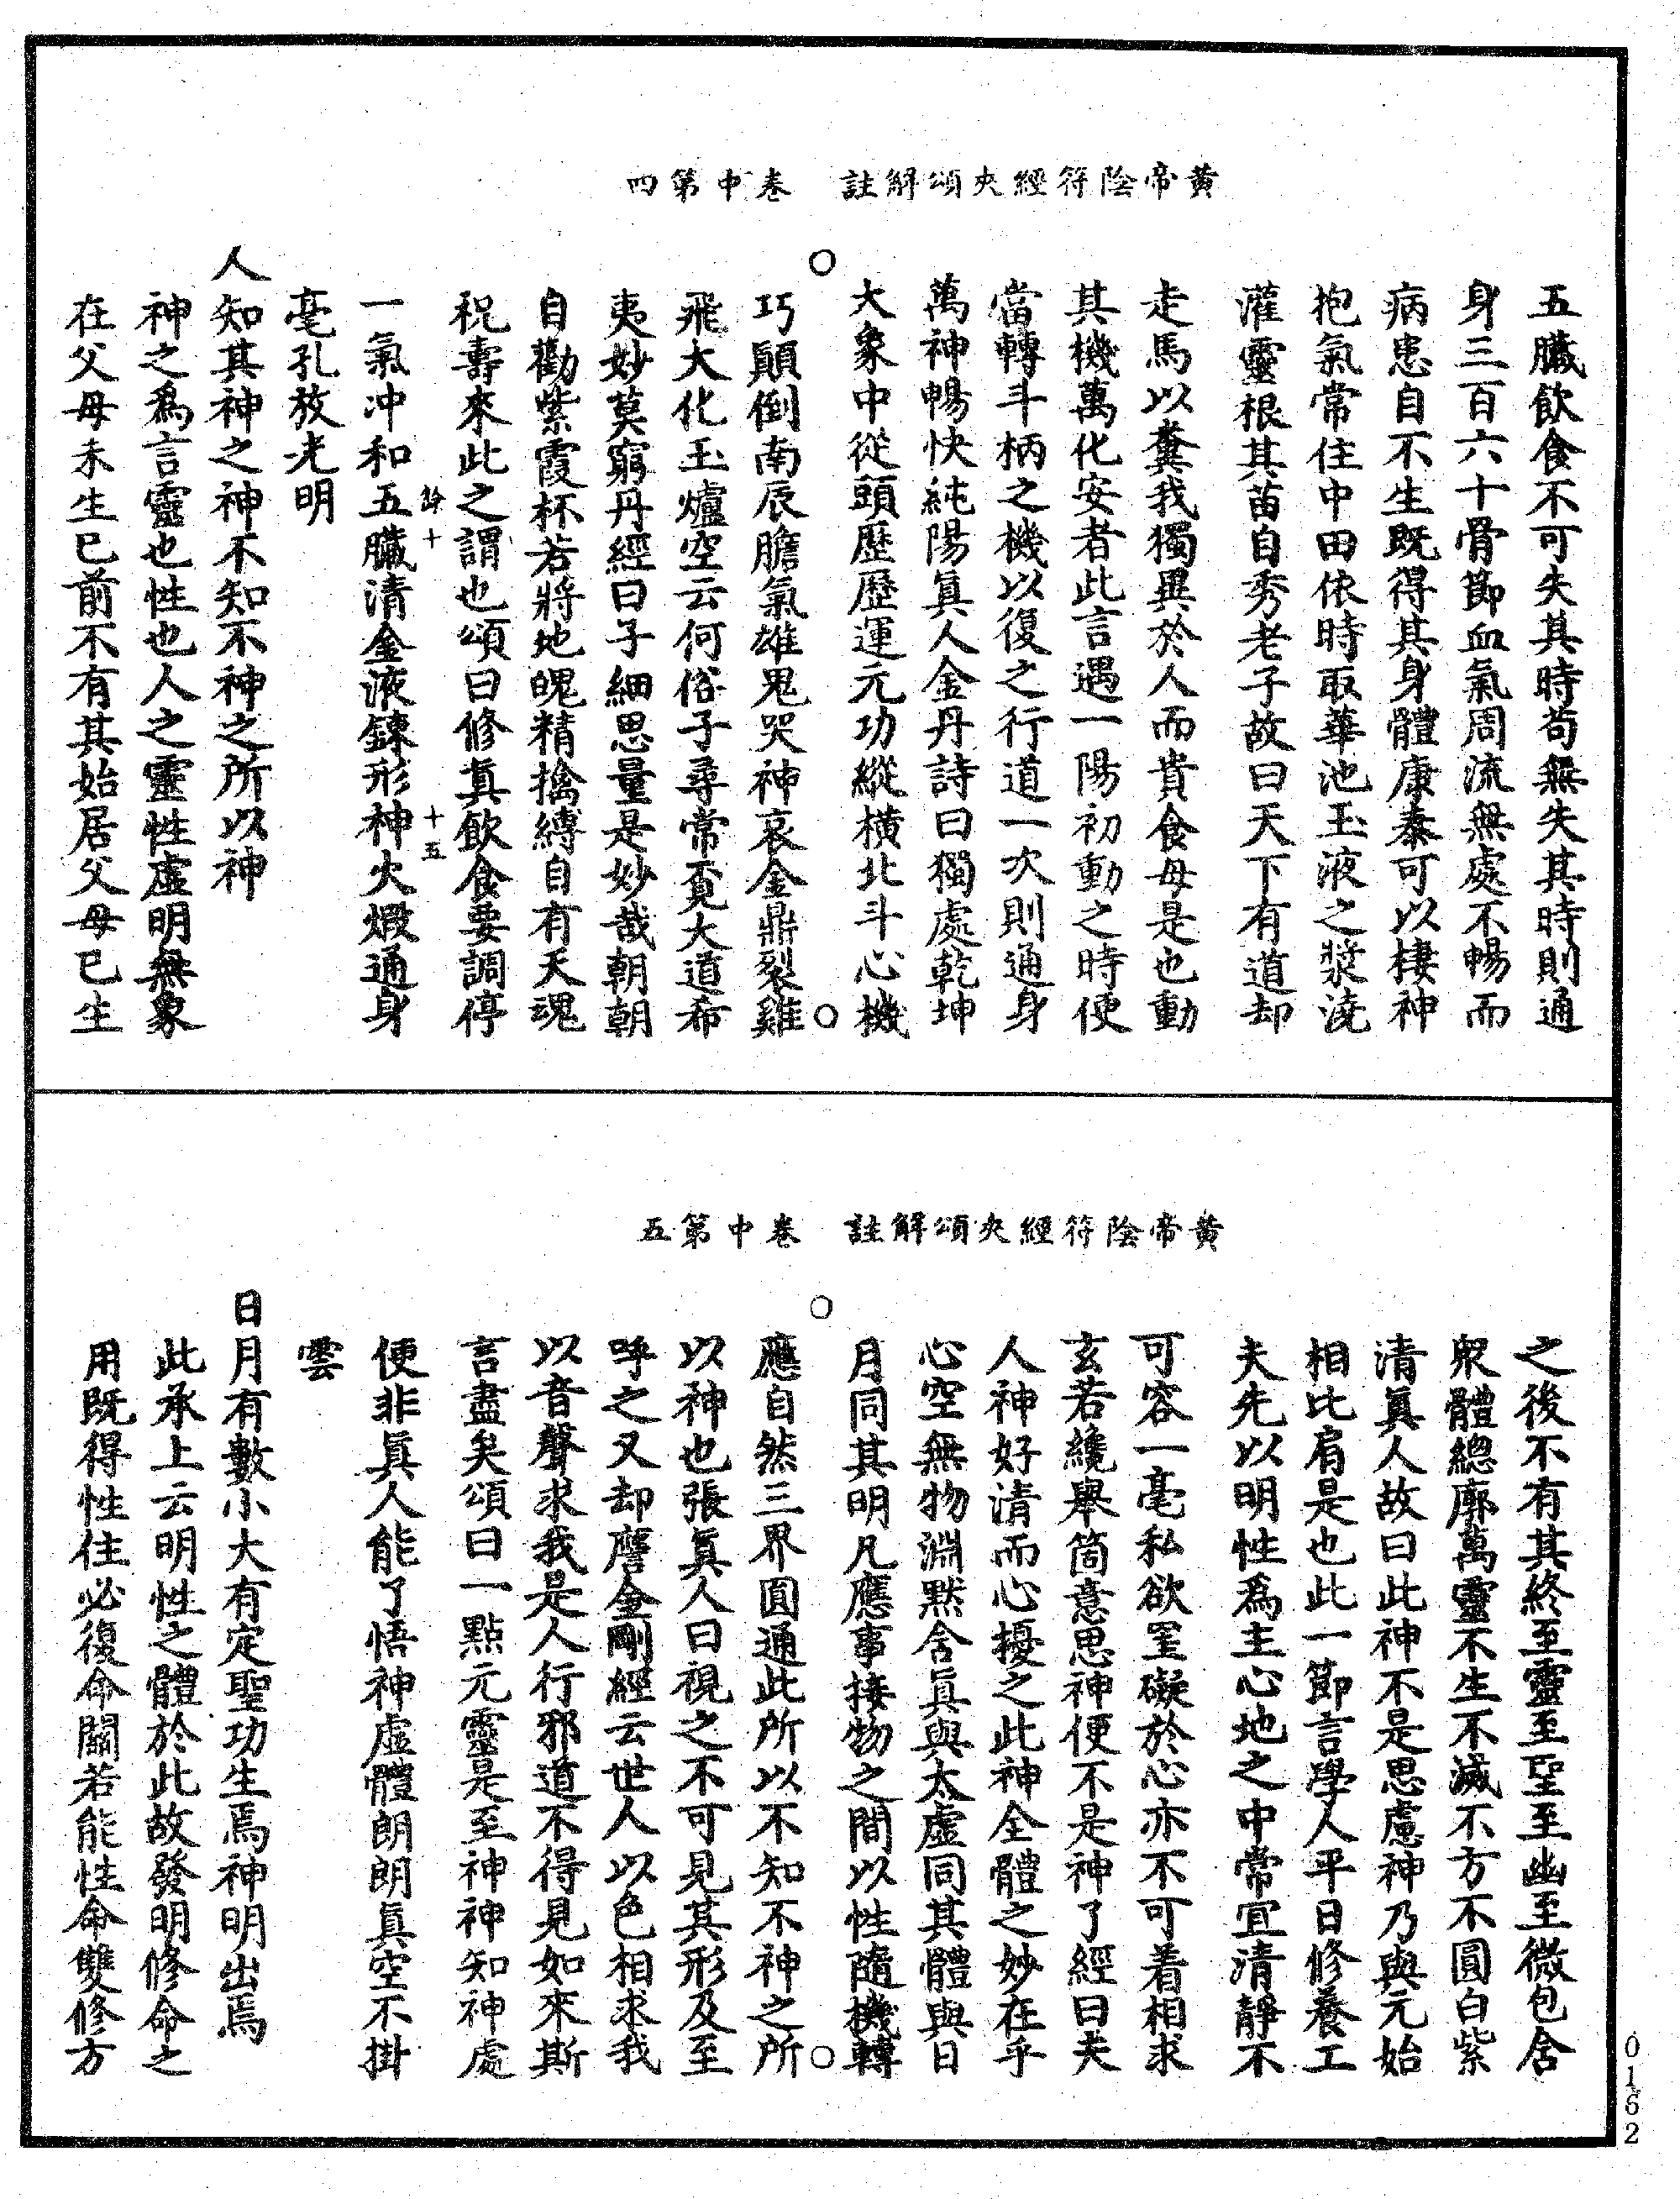 黃帝陰符經夾頌解註　卷中第四
五臟飲食不可失其時苟無失其時則通
身三百六十骨節血氣周流無處不暢而
病患自不生既得其身體康泰可以棲神
抱氣常住中田依時取華池玉液之漿澆
灌靈根其苗自秀老子故曰天下有道却
走馬以糞我獨異於人而貴食母是也動
其機萬化安者此言遇一陽初動之時便
當轉斗柄之機以復之行道一次則通身
萬神暢快純陽眞人金丹詩曰獨處乾坤
大象中從頭歷歷運元功縱橫北斗心機
巧顛倒南辰膽氣雄鬼哭神哀金鼎裂雞
飛犬化玉爐空云何俗子尋常覓大道希
夷妙莫窮丹經曰子細思量是妙哉朝朝
自勸紫霞杯若將地魄精擒縛自有天魂
祝壽來此之謂也頌曰修眞飲食要調停
餘十　十五
一氣冲和五臟清金液鍊形神火煅通身
毫孔放光明
人知其神之神不知不神之所以神
神之爲言靈也性也人之靈性虛明無象
在父母未生已前不有其始居父母已生
黃帝陰符經夾頌解註　卷中第五
之後不有其終至靈至聖至幽至微包含
衆體總廓萬靈不生不滅不方不圓白紫
清眞人故曰此神不是思慮神乃與元始
相比肩是也此一節言學人平日修養工
夫先以明性爲主心地之中常宜清靜不
可容一毫私欲罣礙於心亦不可着相求
玄若纔舉箇意思神便不是神了經曰夫
人神好清而心擾之此神全體之妙在乎
心空無物淵默含眞與太虛同其體與日
月同其明凡應事接物之間以性隨機轉
應自然三界圓通此所以不知不神之所
以神也張眞人曰視之不可見其形及至
呼之又却譍金剛經云世人以色相求我
以音聲求我是人行邪道不得見如來斯
言盡矣頌曰一點元靈是至神神知神處
便非眞人能了悟神虛體朗朗眞空不掛
雲
日月有數小大有定聖功生焉神明出焉
此承上云明性之體於此故發明修命之
用既得性住必復命關若能性命雙修方
0162